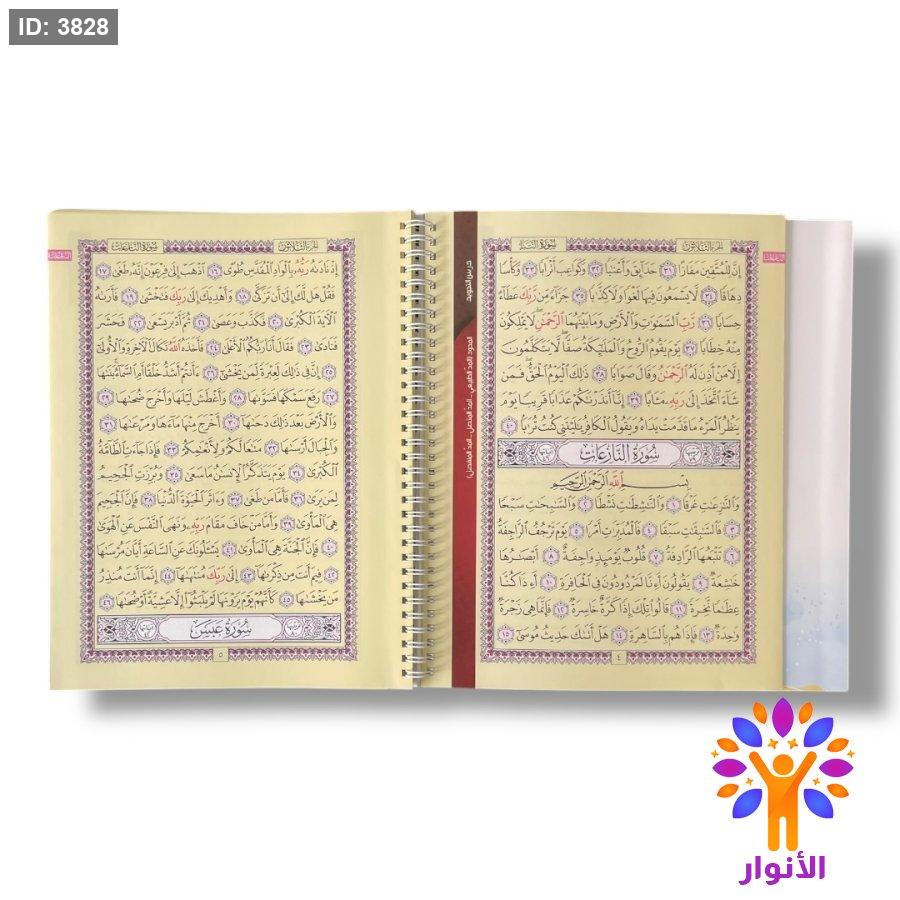 ID: 3828
الجزء الثلاثون سورة النبإ
إِنَّ لِلْمُتَّقِينَ مَفَازًا ٣١ حَدَآئِقَ وَأَعْنَٰبًا ٣٢ وَكَوَاعِبَ أَتْرَابًا ٣٣ وَكَأْسًا
دِهَاقًا ٣٤ لَّا يَسْمَعُونَ فِيهَا لَغْوًا وَلَا كِذَّٰبًا ٣٥ جَزَآءً مِّن رَّبِّكَ عَطَآءً
حِسَابًا ٣٦ رَّبِّ السَّمَٰوَٰتِ وَالْأَرْضِ وَمَا بَيْنَهُمَا الرَّحْمَٰنِ لَا يَمْلِكُونَ
مِنْهُ خِطَابًا ٣٧ يَوْمَ يَقُومُ الرُّوحُ وَالْمَلَٰٓئِكَةُ صَفًّا لَّا يَتَكَلَّمُونَ
إِلَّا مَنْ أَذِنَ لَهُ الرَّحْمَٰنُ وَقَالَ صَوَابًا ٣٨ ذَٰلِكَ الْيَوْمُ الْحَقُّ فَمَن
شَآءَ اتَّخَذَ إِلَىٰ رَبِّهِ مَـَٔابًا ٣٩ إِنَّآ أَنذَرْنَٰكُمْ عَذَابًا قَرِيبًا يَوْمَ
يَنظُرُ الْمَرْءُ مَا قَدَّمَتْ يَدَاهُ وَيَقُولُ الْكَافِرُ يَٰلَيْتَنِي كُنتُ تُرَٰبًا ٤٠
سورة النازعات
بِسْمِ اللَّهِ الرَّحْمَٰنِ الرَّحِيمِ
وَالنَّٰزِعَٰتِ غَرْقًا ١ وَالنَّٰشِطَٰتِ نَشْطًا ٢ وَالسَّٰبِحَٰتِ سَبْحًا
٣ فَالسَّٰبِقَٰتِ سَبْقًا ٤ فَالْمُدَبِّرَٰتِ أَمْرًا ٥ يَوْمَ تَرْجُفُ الرَّاجِفَةُ
٦ تَتْبَعُهَا الرَّادِفَةُ ٧ قُلُوبٌ يَوْمَئِذٍ وَاجِفَةٌ ٨ أَبْصَٰرُهَا
خَٰشِعَةٌ ٩ يَقُولُونَ أَءِنَّا لَمَرْدُودُونَ فِي الْحَافِرَةِ ١٠ أَءِذَا كُنَّا
عِظَٰمًا نَّخِرَةً ١١ قَالُوا تِلْكَ إِذًا كَرَّةٌ خَاسِرَةٌ ١٢ فَإِنَّمَا هِيَ زَجْرَةٌ
وَٰحِدَةٌ ١٣ فَإِذَا هُم بِالسَّاهِرَةِ ١٤ هَلْ أَتَىٰكَ حَدِيثُ مُوسَىٰٓ ١٥
٤
درس التجويد
المدود (المد الطبيعي - المد المتصل - المد المنفصل)
الجزء الثلاثون سورة النازعات
إِذْ نَادَىٰهُ رَبُّهُ بِالْوَادِ الْمُقَدَّسِ طُوًى ١٦ اذْهَبْ إِلَىٰ فِرْعَوْنَ إِنَّهُ طَغَىٰ ١٧
فَقُلْ هَل لَّكَ إِلَىٰٓ أَن تَزَكَّىٰ ١٨ وَأَهْدِيَكَ إِلَىٰ رَبِّكَ فَتَخْشَىٰ ١٩ فَأَرَىٰهُ
الْآيَةَ الْكُبْرَىٰ ٢٠ فَكَذَّبَ وَعَصَىٰ ٢١ ثُمَّ أَدْبَرَ يَسْعَىٰ ٢٢ فَحَشَرَ
فَنَادَىٰ ٢٣ فَقَالَ أَنَا۠ رَبُّكُمُ الْأَعْلَىٰ ٢٤ فَأَخَذَهُ اللَّهُ نَكَالَ الْآخِرَةِ وَالْأُولَىٰٓ
٢٥ إِنَّ فِي ذَٰلِكَ لَعِبْرَةً لِّمَن يَخْشَىٰٓ ٢٦ ءَأَنتُمْ أَشَدُّ خَلْقًا أَمِ السَّمَآءُ بَنَىٰهَا
٢٧ رَفَعَ سَمْكَهَا فَسَوَّىٰهَا ٢٨ وَأَغْطَشَ لَيْلَهَا وَأَخْرَجَ ضُحَىٰهَا ٢٩
وَالْأَرْضَ بَعْدَ ذَٰلِكَ دَحَىٰهَآ ٣٠ أَخْرَجَ مِنْهَا مَآءَهَا وَمَرْعَىٰهَا ٣١
وَالْجِبَالَ أَرْسَىٰهَا ٣٢ مَتَٰعًا لَّكُمْ وَلِأَنْعَٰمِكُمْ ٣٣ فَإِذَا جَآءَتِ الطَّآمَّةُ
الْكُبْرَىٰ ٣٤ يَوْمَ يَتَذَكَّرُ الْإِنسَٰنُ مَا سَعَىٰ ٣٥ وَبُرِّزَتِ الْجَحِيمُ
لِمَن يَرَىٰ ٣٦ فَأَمَّا مَن طَغَىٰ ٣٧ وَءَاثَرَ الْحَيَوٰةَ الدُّنْيَا ٣٨ فَإِنَّ الْجَحِيمَ
هِيَ الْمَأْوَىٰ ٣٩ وَأَمَّا مَنْ خَافَ مَقَامَ رَبِّهِ وَنَهَى النَّفْسَ عَنِ الْهَوَىٰ
٤٠ فَإِنَّ الْجَنَّةَ هِيَ الْمَأْوَىٰ ٤١ يَسْـَٔلُونَكَ عَنِ السَّاعَةِ أَيَّانَ مُرْسَىٰهَا
٤٢ فِيمَ أَنتَ مِن ذِكْرَىٰهَآ ٤٣ إِلَىٰ رَبِّكَ مُنتَهَىٰهَآ ٤٤ إِنَّمَآ أَنتَ مُنذِرُ
مَن يَخْشَىٰهَا ٤٥ كَأَنَّهُمْ يَوْمَ يَرَوْنَهَا لَمْ يَلْبَثُوٓا إِلَّا عَشِيَّةً أَوْ ضُحَىٰهَا ٤٦
سورة عبس
٥
الأنوار